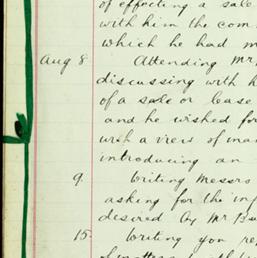 of effecting a sale
with him the com
which he had m
Aug 8 Attending Mr
discussing with h
of a sale or lease
and he wished fo
with a view of ma
introducing an
9. Writing Messrs
asking for the inf
desired by Mr
15. Writing you re
of matters